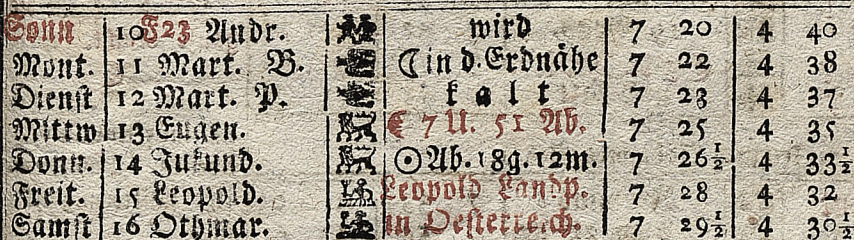 Sonn 10 F23 Andr. wird 7 20 4 40
Mont. 11 Mart. B. ☾ in d. Erdnähe 7 22 4 38
Dienst 12 Mart. P. kalt 7 23 4 37
Mittw 13 Eugen. ☾ 7 U. 51 Ab. 7 25 4 35
Donn. 14 Jukund. ☉ Ab. 18g. 12m. 7 26½ 4 33½
Freit. 15 Leopold. Leopold Landp. 7 28 4 32
Samst 16 Othmar. in Oesterreich. 7 29½ 4 30½